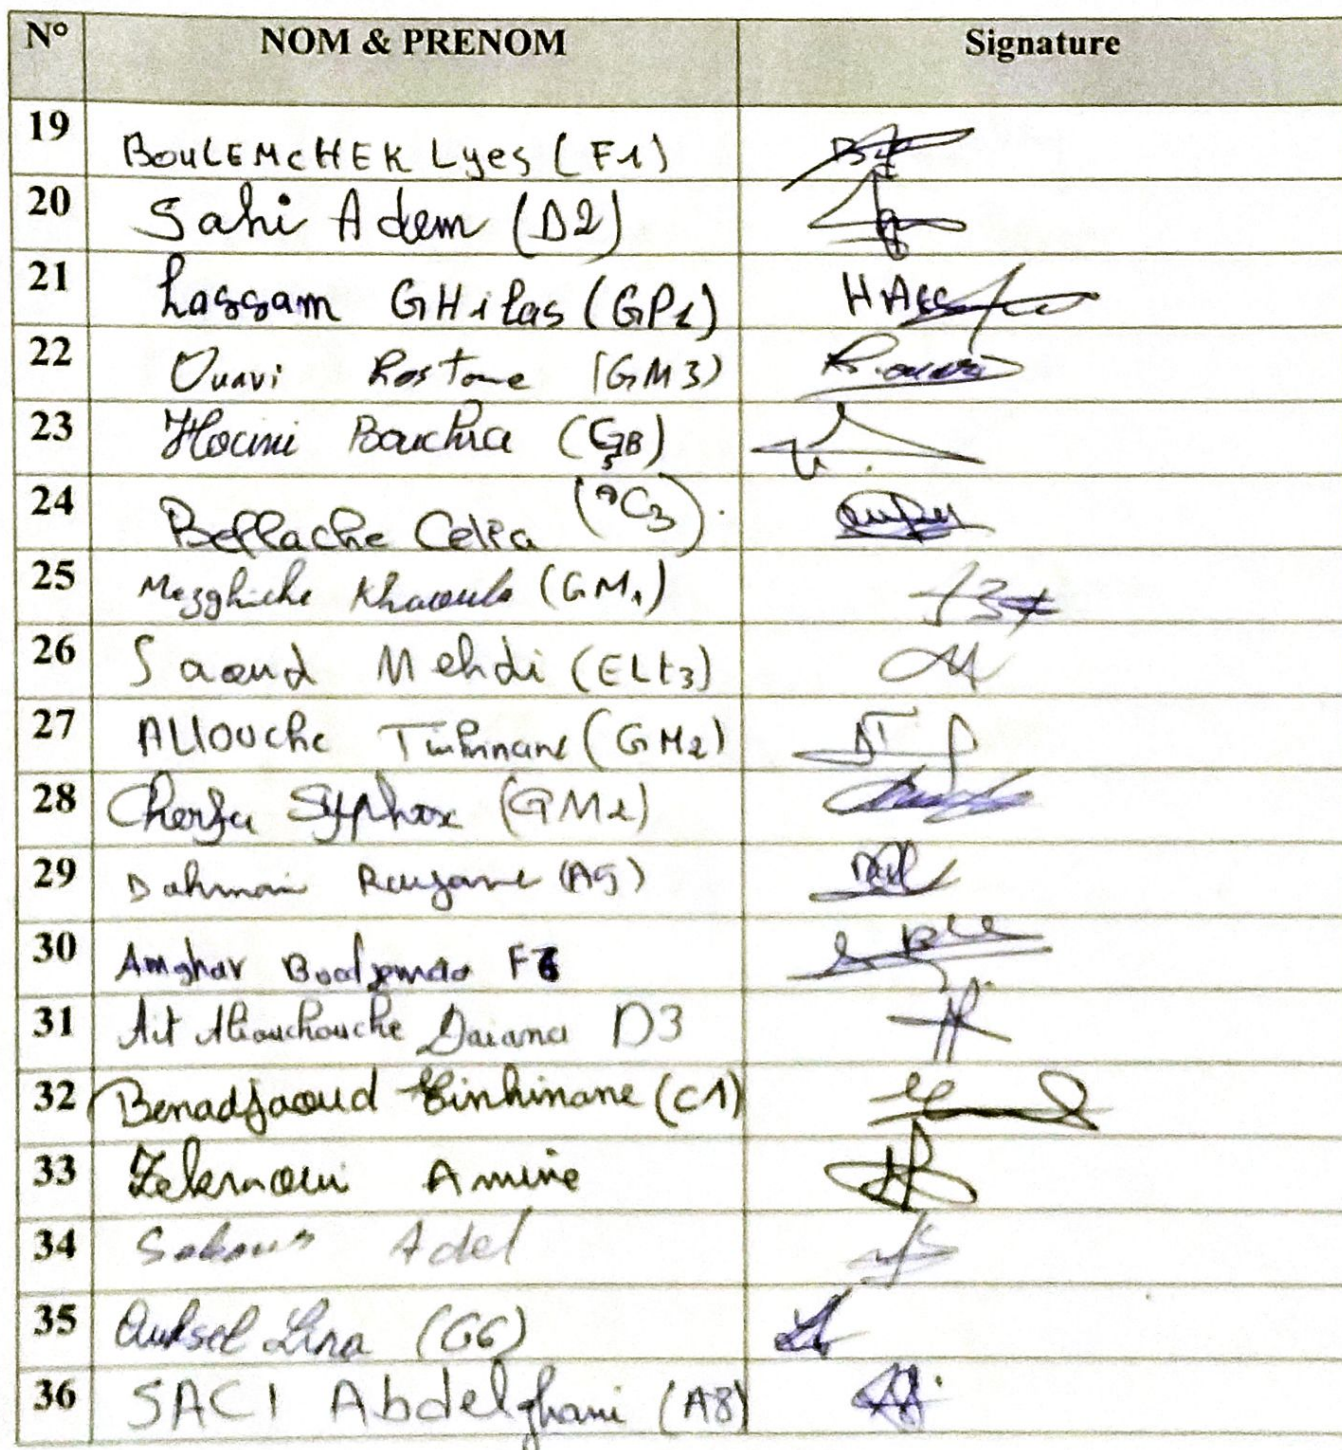 N° NOM & PRENOM Signature
19 BOULEMCHEK Lyes (F1)
20 Sahi Adem (D2)
21 Lassam GHilas (GP1)
22 Ouavi Rostane (GM3)
23 Hocini Bouchra
24 Bellache Celia
25 Mezghiche Khaoula (GM1)
26 Saoud Mehdi (ELt3)
27 Allouche Tinhinane (GM2)
28 Cherfa Syphax (GM2)
29 Dahmani Rayane (A5)
30 Amghar Boudjemaa
31 Ait Aliouchouche Daiana D3
32 Benadjaoud Tinhinane (C1)
33 Zekraoui Amine
34 Adel
35 Lina (G6)
36 SACI Abdelghani (A8)